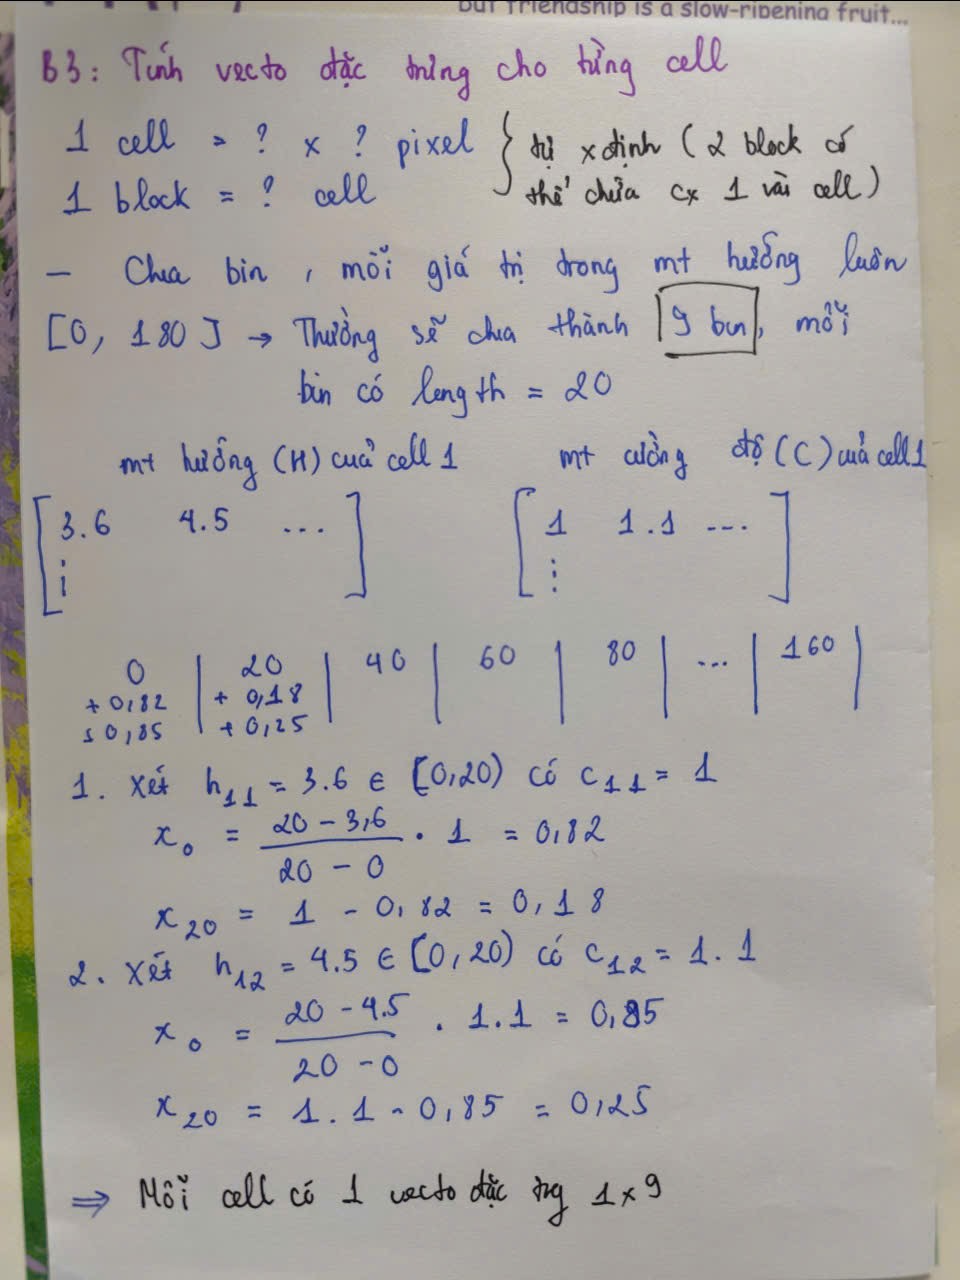 but friendship is a slow-ripening fruit...
B3: Tính vectơ đặc trưng cho từng cell
1 cell = ? x ? pixel } tự xđịnh ( 2 block có
1 block = ? cell thể chứa cx 1 vài cell )
- Chia bin , mỗi giá trị trong mt hướng luôn
[0, 180] → Thường sẽ chia thành 9 bin, mỗi
bin có length = 20
mt hướng (H) cuả cell 1 mt cường độ (C) cuả cell 1
3.6 4.5 ... 1 1.1 ...
⋮ ⋮
0 | 20 | 40 | 60 | 80 | ... | 160 |
+ 0,82 + 0,18
+ 0,85 + 0,25
1. Xét h11 = 3.6 ∈ [0,20) có c11 = 1
x0 = (20 - 3,6)/(20 - 0) . 1 = 0,82
x20 = 1 - 0,82 = 0,18
2. Xét h12 = 4.5 ∈ [0,20) có c12 = 1.1
x0 = (20 - 4.5)/(20 - 0) . 1.1 = 0,85
x20 = 1.1 - 0,85 = 0,25
⇒ Mỗi cell có 1 vectơ đặc trg 1x9